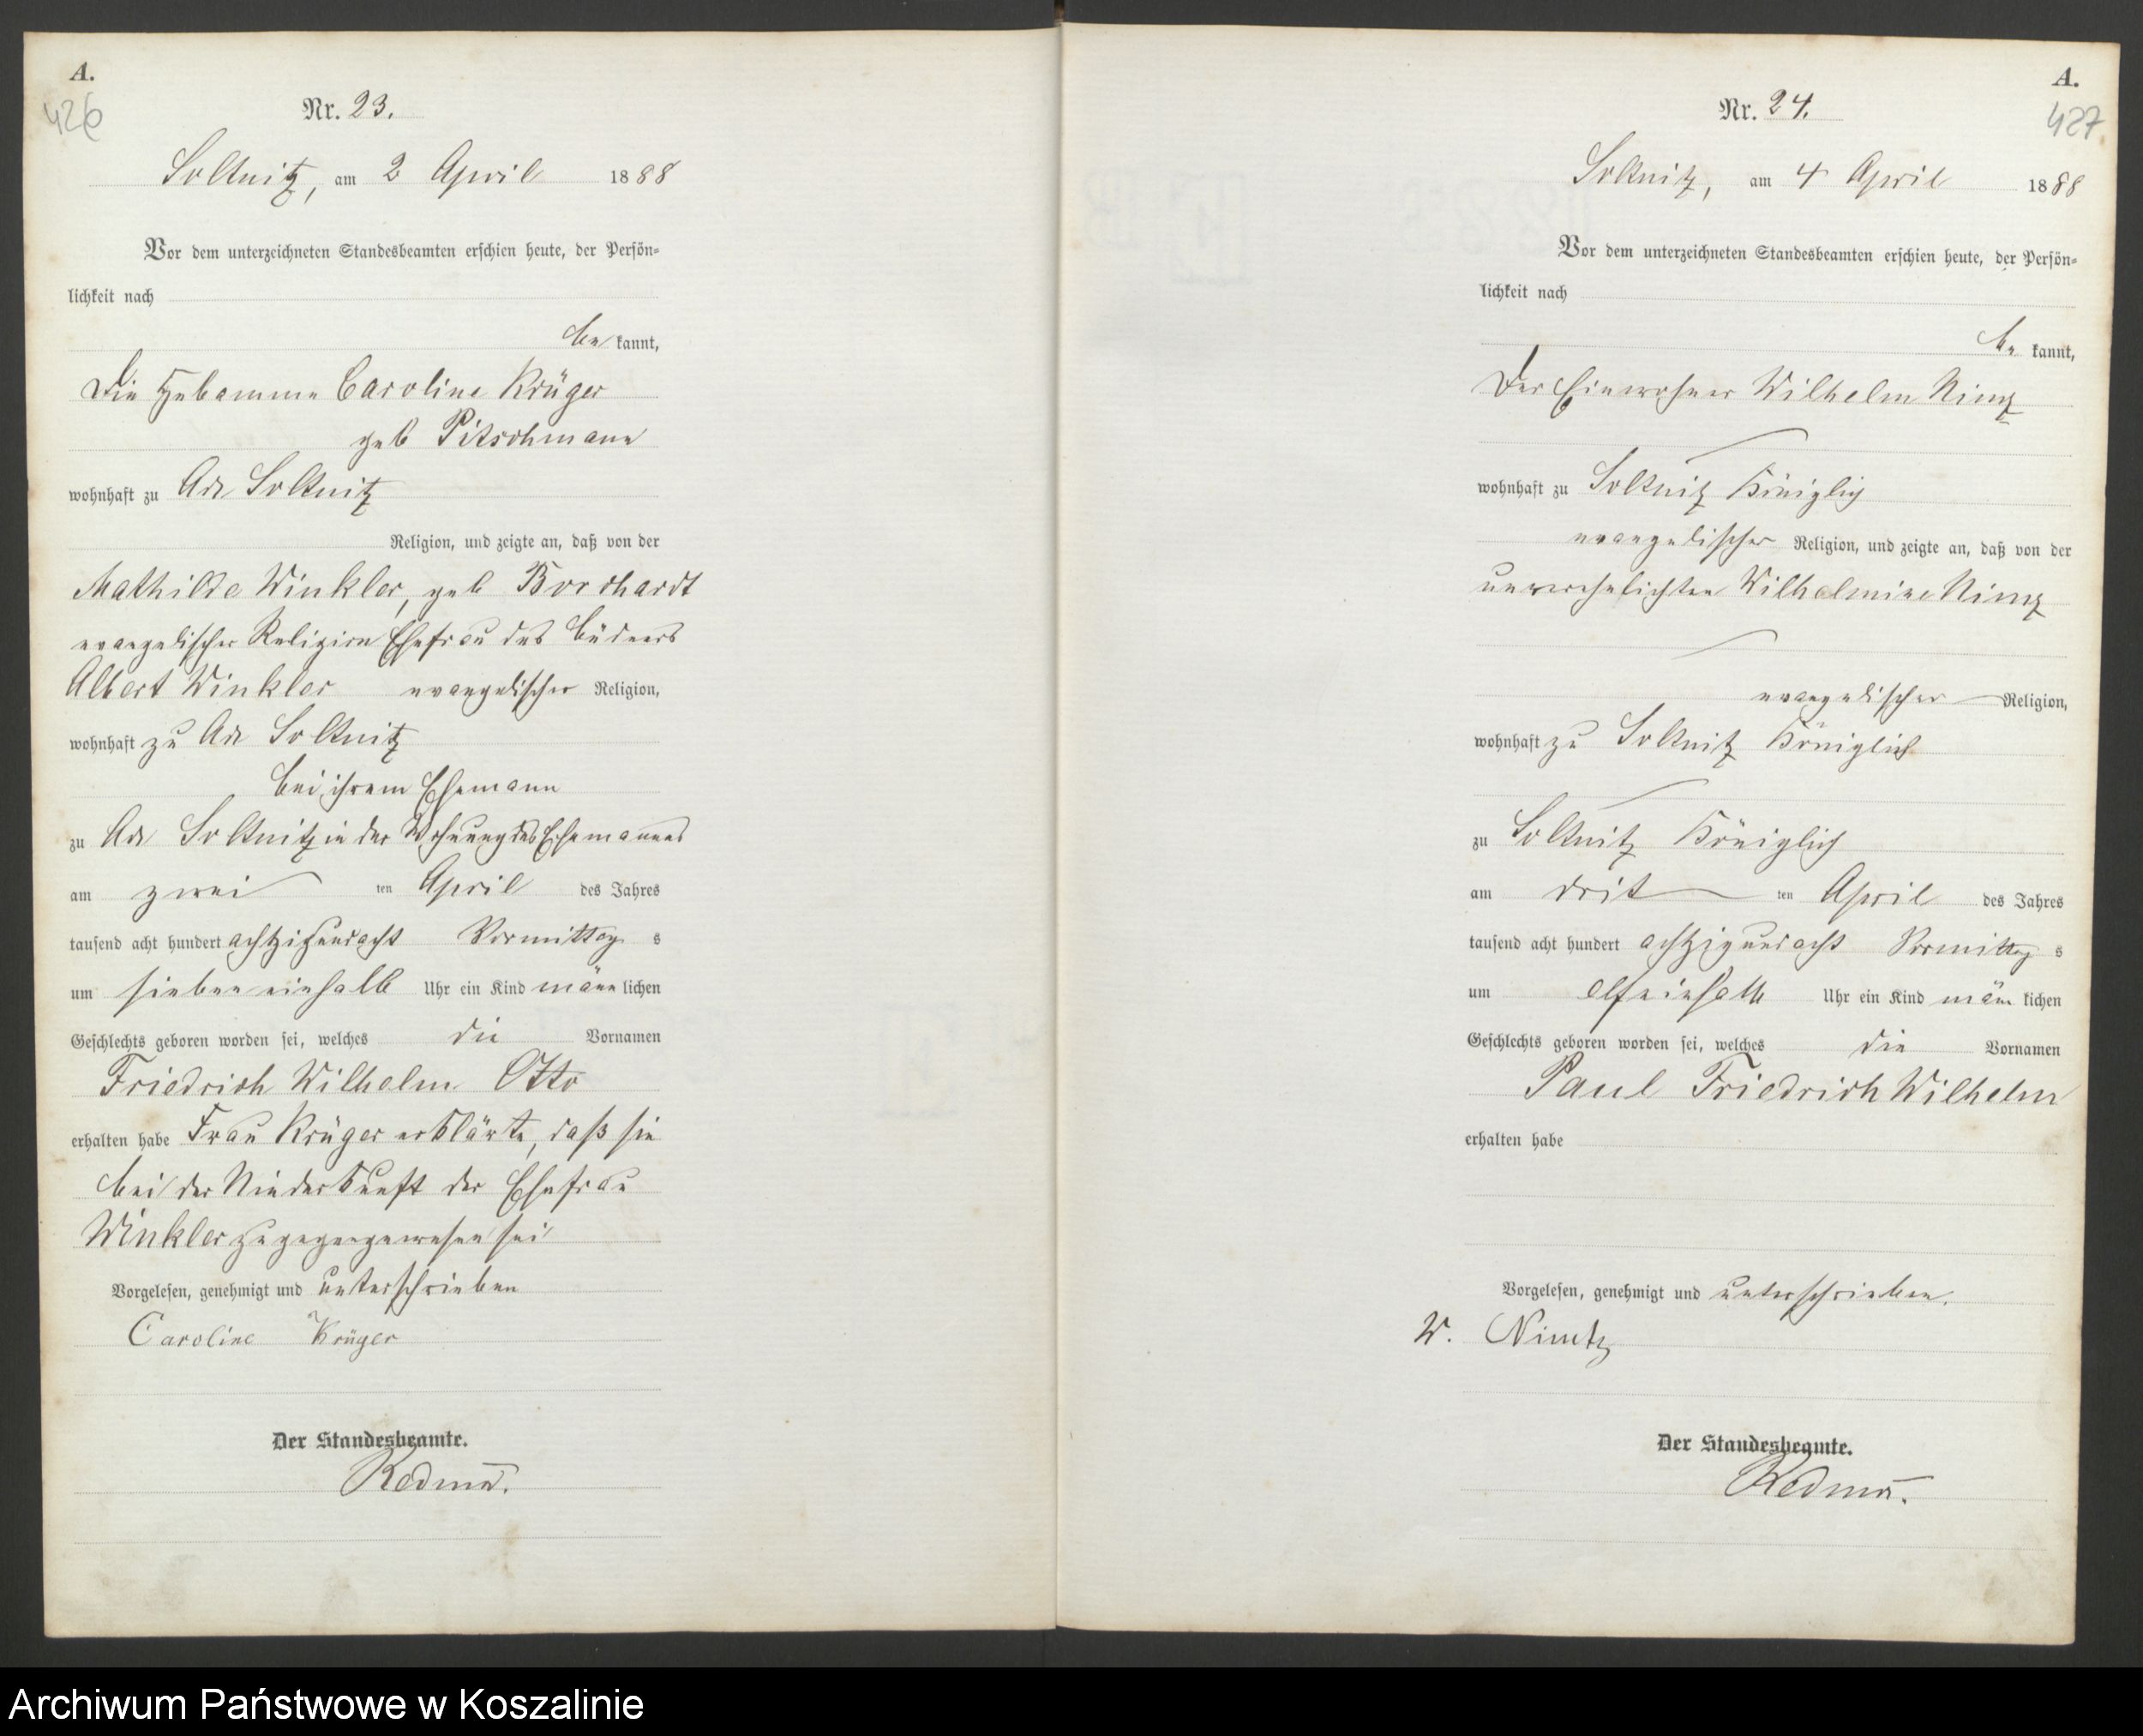 A.
426
Nr. 23.
Soltnitz, am 2 April 1888
Vor dem unterzeichneten Standesbeamten erschien heute, der Persön-
lichkeit nach
be kannt,
Die Hebamme Caroline Krüger
geb Pitschmann
wohnhaft zu Adl Soltnitz
Religion, und zeigte an, daß von der
Mathilde Winkler, geb Borchardt
evangelischer Religion Ehefrau des Büdners
Albert Winkler evangelischer Religion,
wohnhaft zu Adl Soltnitz
bei ihrem Ehemann
zu Adl Soltnitz in der Wohnung des Ehemannes
am zwei ten April des Jahres
tausend acht hundert achtzigundacht Vormittag s
um sieben einhalb Uhr ein Kind männ lichen
Geschlechts geboren worden sei, welches die Vornamen
Friedrich Wilhelm Otto
erhalten habe Frau Krüger erklärte, daß sie
bei der Niederkunft der Ehefrau
Winkler zugegengewesen sei
Vorgelesen, genehmigt und unterschrieben
Caroline Krüger
Der Standesbeamte.
A.
427
Nr. 24.
Soltnitz, am 4 April 1888
Vor dem unterzeichneten Standesbeamten erschien heute, der Persön-
lichkeit nach
be kannt,
Der Einwohner Wilhelm Nimz
wohnhaft zu Soltnitz Königlich
evangelischer Religion, und zeigte an, daß von der
unverehelichten Wilhelmine Nimz
evangelischer Religion,
wohnhaft zu Soltnitz Königlich
zu Soltnitz Königlich
am drit ten April des Jahres
tausend acht hundert achtzigundacht Vormittag s
um elfeinhalb Uhr ein Kind män lichen
Geschlechts geboren worden sei, welches die Vornamen
Paul Friedrich Wilhelm
erhalten habe
Vorgelesen, genehmigt und unterschrieben.
W. Nimtz
Der Standesbeamte.
Archiwum Państwowe w Koszalinie